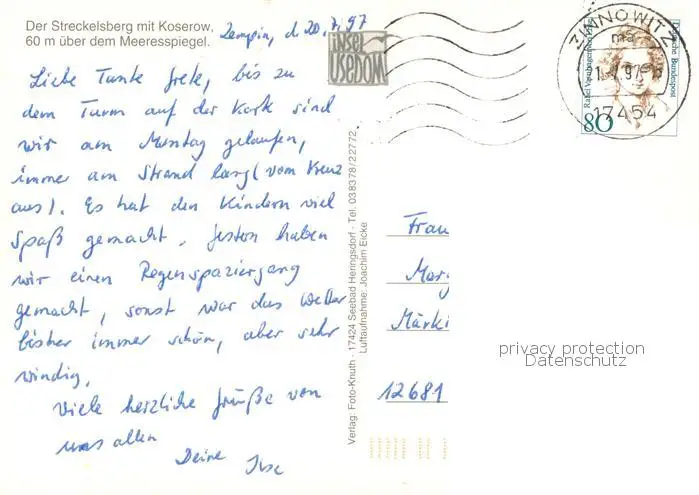 Der Streckelsberg mit Koserow,
60 m über dem Meeresspiegel.
Zempin, d. 20.7.97
Liebe Tante Grete, bis zu
dem Turm auf der Karte sind
wir am Montag gelaufen,
immer am Strand lang (vom Kreuz
aus). Es hat den Kindern viel
Spaß gemacht. Gestern haben
wir einen Regenspaziergang
gemacht, sonst war das Wetter
bisher immer schön, aber sehr
windig.
Viele herzliche Grüße von
uns allen
Deine Ilse
insel
USEDOM
Verlag: Foto-Knuth · 17424 Seebad Heringsdorf · Tel. 038378/22772
Luftaufnahme: Joachim Eicke
ZINNOWITZ
ma
21.7.97
17454
Deutsche Bundespost
Rahel Varnhagen von Ense
80
Frau
Marg
Märki
12681
privacy protection
Datenschutz